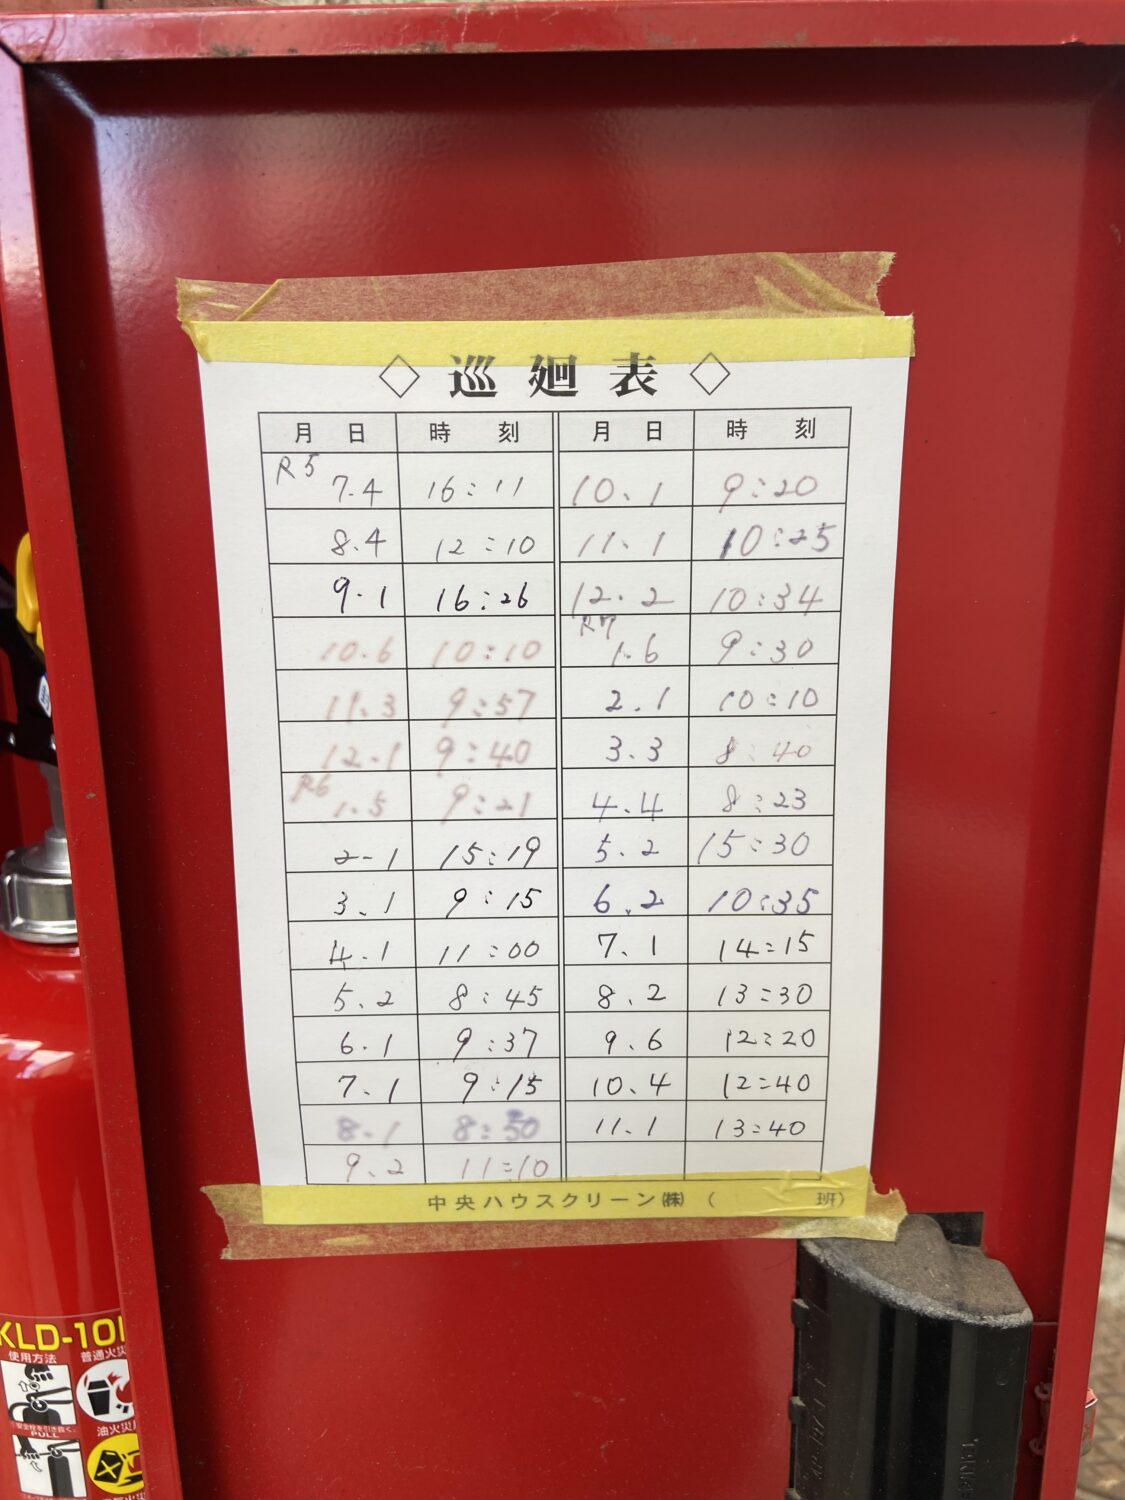 ◇ 巡廻表 ◇
月 日 時 刻 月 日 時 刻
R5 7.4 16:11 10.1 9:20
8.4 12:10 11.1 10:25
9.1 16:26 12.2 10:34
10.6 10:10 R7 1.6 9:30
11.3 9:57 2.1 10:10
12.1 9:40 3.3 8:40
R6 1.5 9:21 4.4 8:23
2-1 15:19 5.2 15:30
3.1 9:15 6.2 10:35
4.1 11:00 7.1 14:15
5.2 8:45 8.2 13:30
6.1 9:37 9.6 12:20
7.1 9:15 10.4 12:40
8.1 8:50 11.1 13:40
9.2 11:10
中央ハウスクリーン㈱ ( 班)
KLD-10
使用方法 普通火災
PULL
油火災